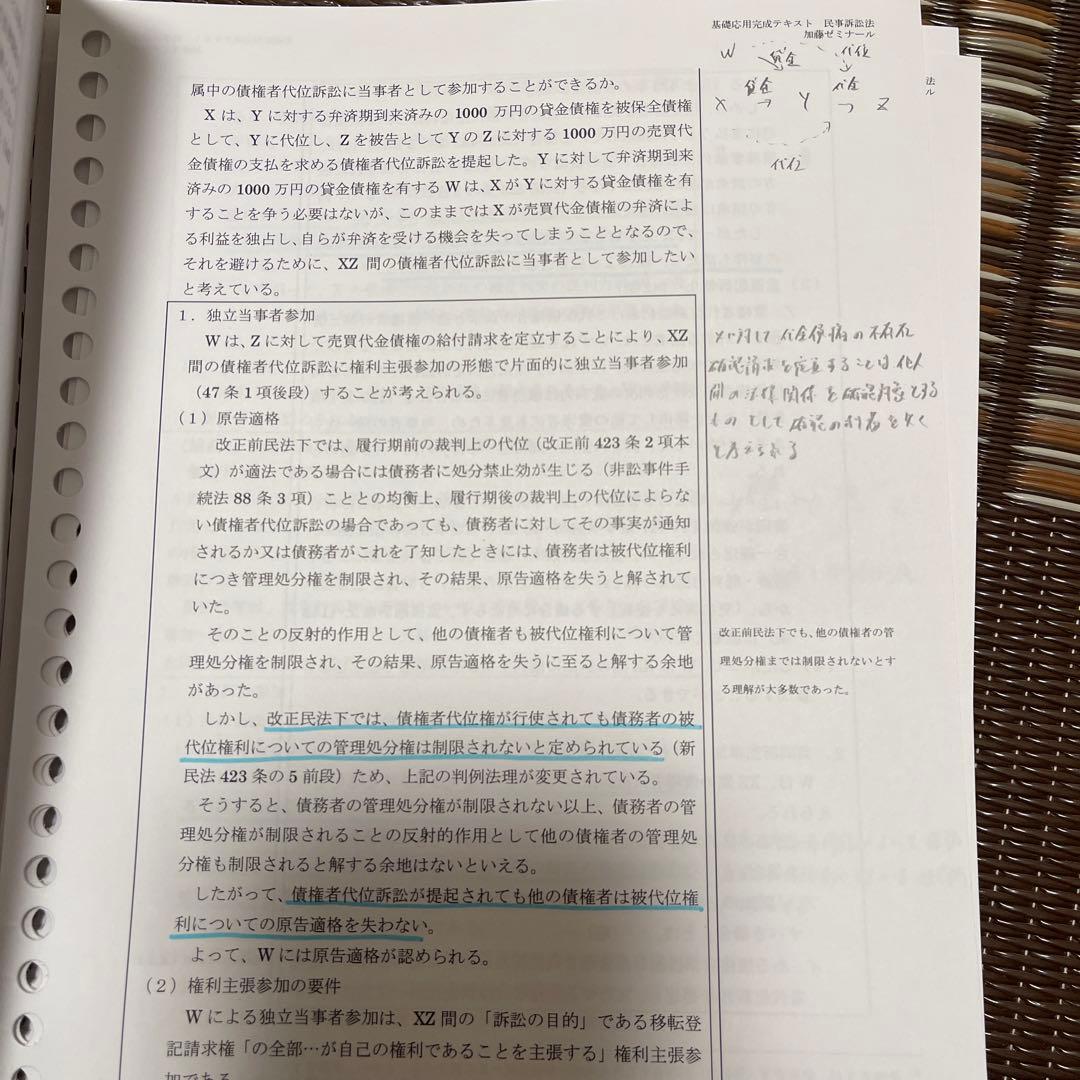 基礎応用完成テキスト 民事訴訟法
加藤ゼミナール
W 貸金 代位
貸金 代金
X → Y → Z
代位
法
ル
属中の債権者代位訴訟に当事者として参加することができるか。
Xは、Yに対する弁済期到来済みの 1000 万円の貸金債権を被保全債権
として、Yに代位し、Zを被告としてYのZに対する 1000 万円の売買代
金債権の支払を求める債権者代位訴訟を提起した。Yに対して弁済期到来
済みの 1000 万円の貸金債権を有するWは、XがYに対する貸金債権を有
することを争う必要はないが、このままではXが売買代金債権の弁済によ
る利益を独占し、自らが弁済を受ける機会を失ってしまうこととなるので、
それを避けるために、XZ 間の債権者代位訴訟に当事者として参加したい
と考えている。
1．独立当事者参加
Wは、Zに対して売買代金債権の給付請求を定立することにより、XZ
間の債権者代位訴訟に権利主張参加の形態で片面的に独立当事者参加
（47 条 1 項後段）することが考えられる。
Xに対して代金債権の不存在
確認請求を定立することは他人
間の法律関係を確認対象とする
ものとして確認の利益を欠く
と考えられる
（1）原告適格
改正前民法下では、履行期前の裁判上の代位（改正前 423 条 2 項本
文）が適法である場合には債務者に処分禁止効が生じる（非訟事件手
続法 88 条 3 項）こととの均衡上、履行期後の裁判上の代位によらな
い債権者代位訴訟の場合であっても、債務者に対してその事実が通知
されるか又は債務者がこれを了知したときには、債務者は被代位権利
につき管理処分権を制限され、その結果、原告適格を失うと解されて
いた。
そのことの反射的作用として、他の債権者も被代位権利について管
理処分権を制限され、その結果、原告適格を失うに至ると解する余地
があった。
改正前民法下でも、他の債権者の管
理処分権までは制限されないとす
る理解が大多数であった。
しかし、改正民法下では、債権者代位権が行使されても債務者の被
代位権利についての管理処分権は制限されないと定められている（新
民法 423 条の 5 前段）ため、上記の判例法理が変更されている。
そうすると、債務者の管理処分権が制限されない以上、債務者の管
理処分権が制限されることの反射的作用として他の債権者の管理処
分権も制限されると解する余地はないといえる。
したがって、債権者代位訴訟が提起されても他の債権者は被代位権
利についての原告適格を失わない。
よって、Wには原告適格が認められる。
（2）権利主張参加の要件
Wによる独立当事者参加は、XZ 間の「訴訟の目的」である移転登
記請求権「の全部…が自己の権利であることを主張する」権利主張参
加である。